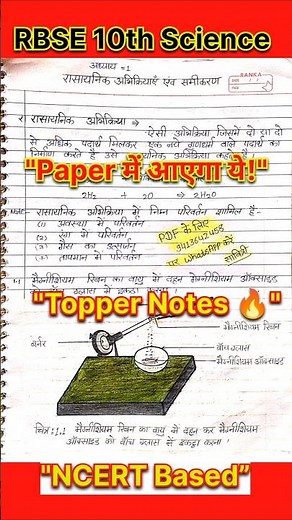 RBSE 10th Science
अध्याय =1
RANKA
रासायनिक अभिक्रियाएँ एवं समीकरण
रासायनिक अभिक्रिया → ऐसी अभिक्रिया जिसमें दो या दो
से अधिक पदार्थ मिलकर एक नये गुणधर्म वाले पदार्थ का
निर्माण करते हैं उसे रासायनिक अभिक्रिया कहते
"Paper में आएगा ये!"
2H₂ + 2O → 2H₂O
Note:- रासायनिक अभिक्रिया में निम्न परिवर्तन शामिल है-
(1) अवस्था में परिवर्तन
(2) रंग में परिवर्तन
(3) गैस का उत्सर्जन
(4) तापमान में परिवर्तन
PDF के लिए
पर WhatsApp करें
मैग्नीशियम रिबन का वायु में दहन मैग्नीशियम ऑक्साइड
"Topper Notes 🔥"
मैग्नीशियम रिबन
बर्नर
वॉच ग्लास
मैग्नीशियम ऑक्साइड
चित्र:1.1 मैग्नीशियम रिबन का वायु में दहन कर मैग्नीशियम
ऑक्साइड को वॉच ग्लास में इकट्ठा करना।
"NCERT Based”